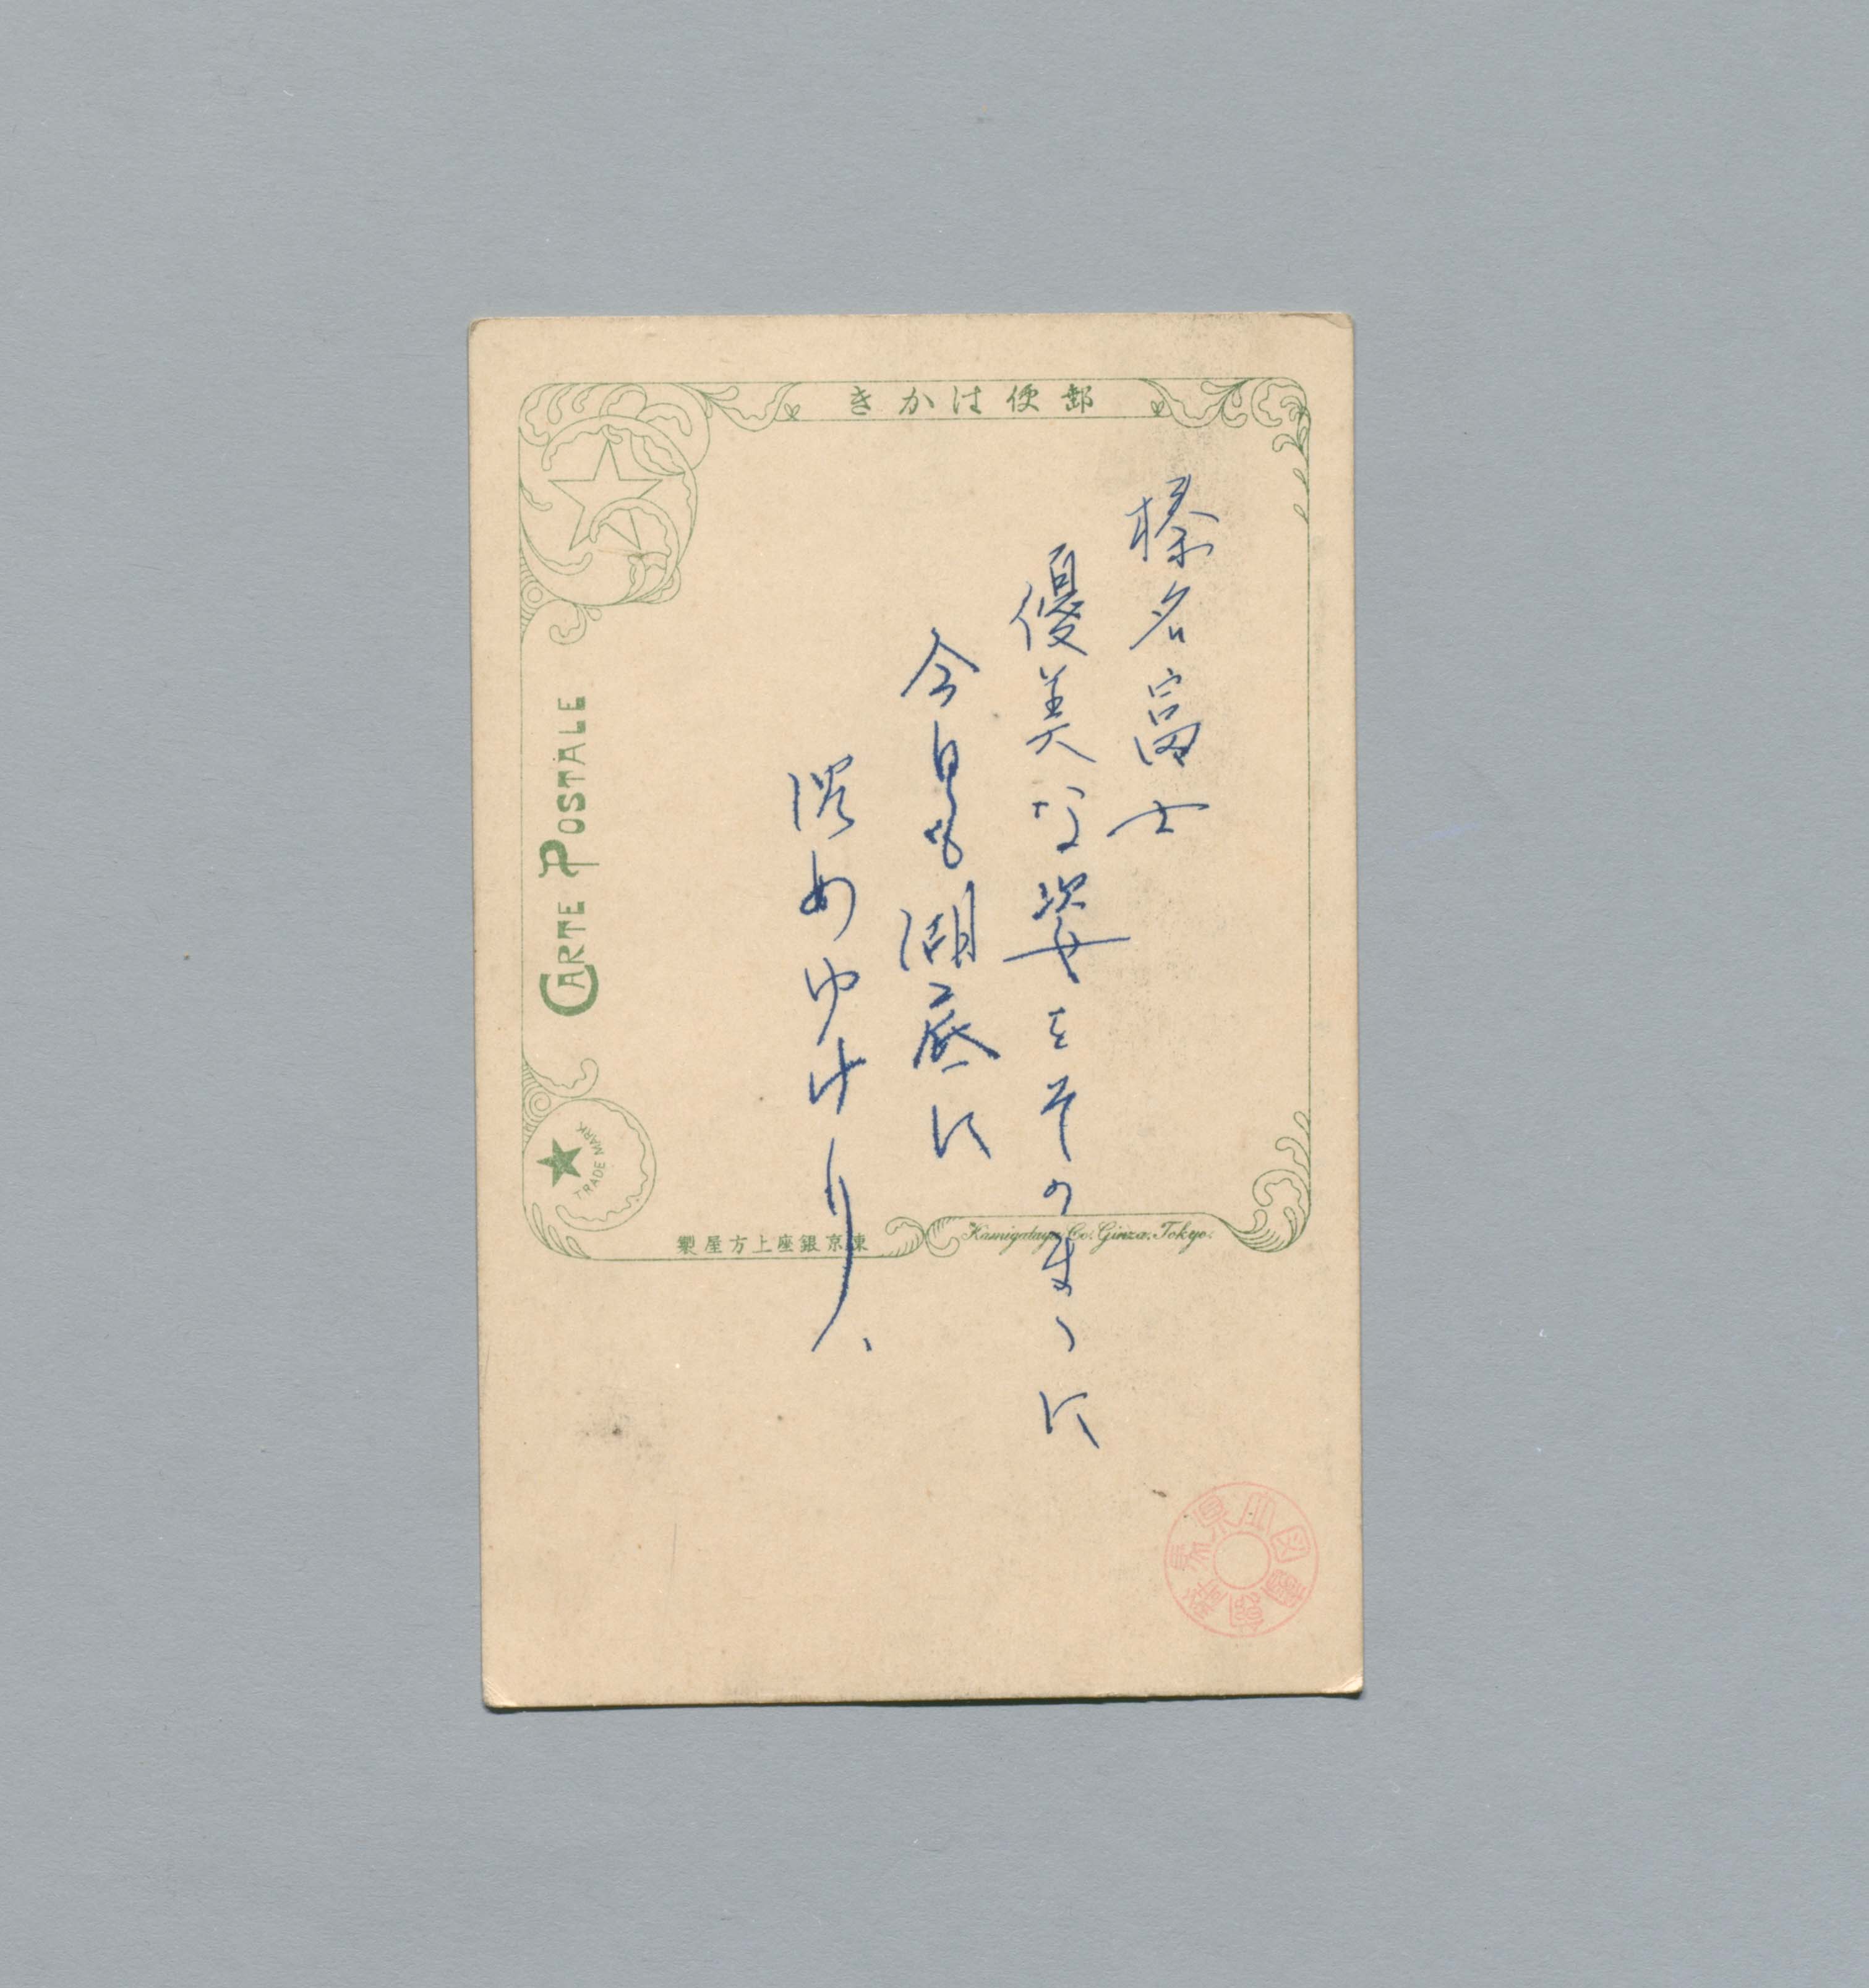 郵便はかき
榛名富士
優美な姿をそのまゝに
今日も湖底に
深めゆけり、
CARTE POSTALE
TRADE MARK
東京銀座上方屋製
Kamigataya Co. Ginza, Tokyo.